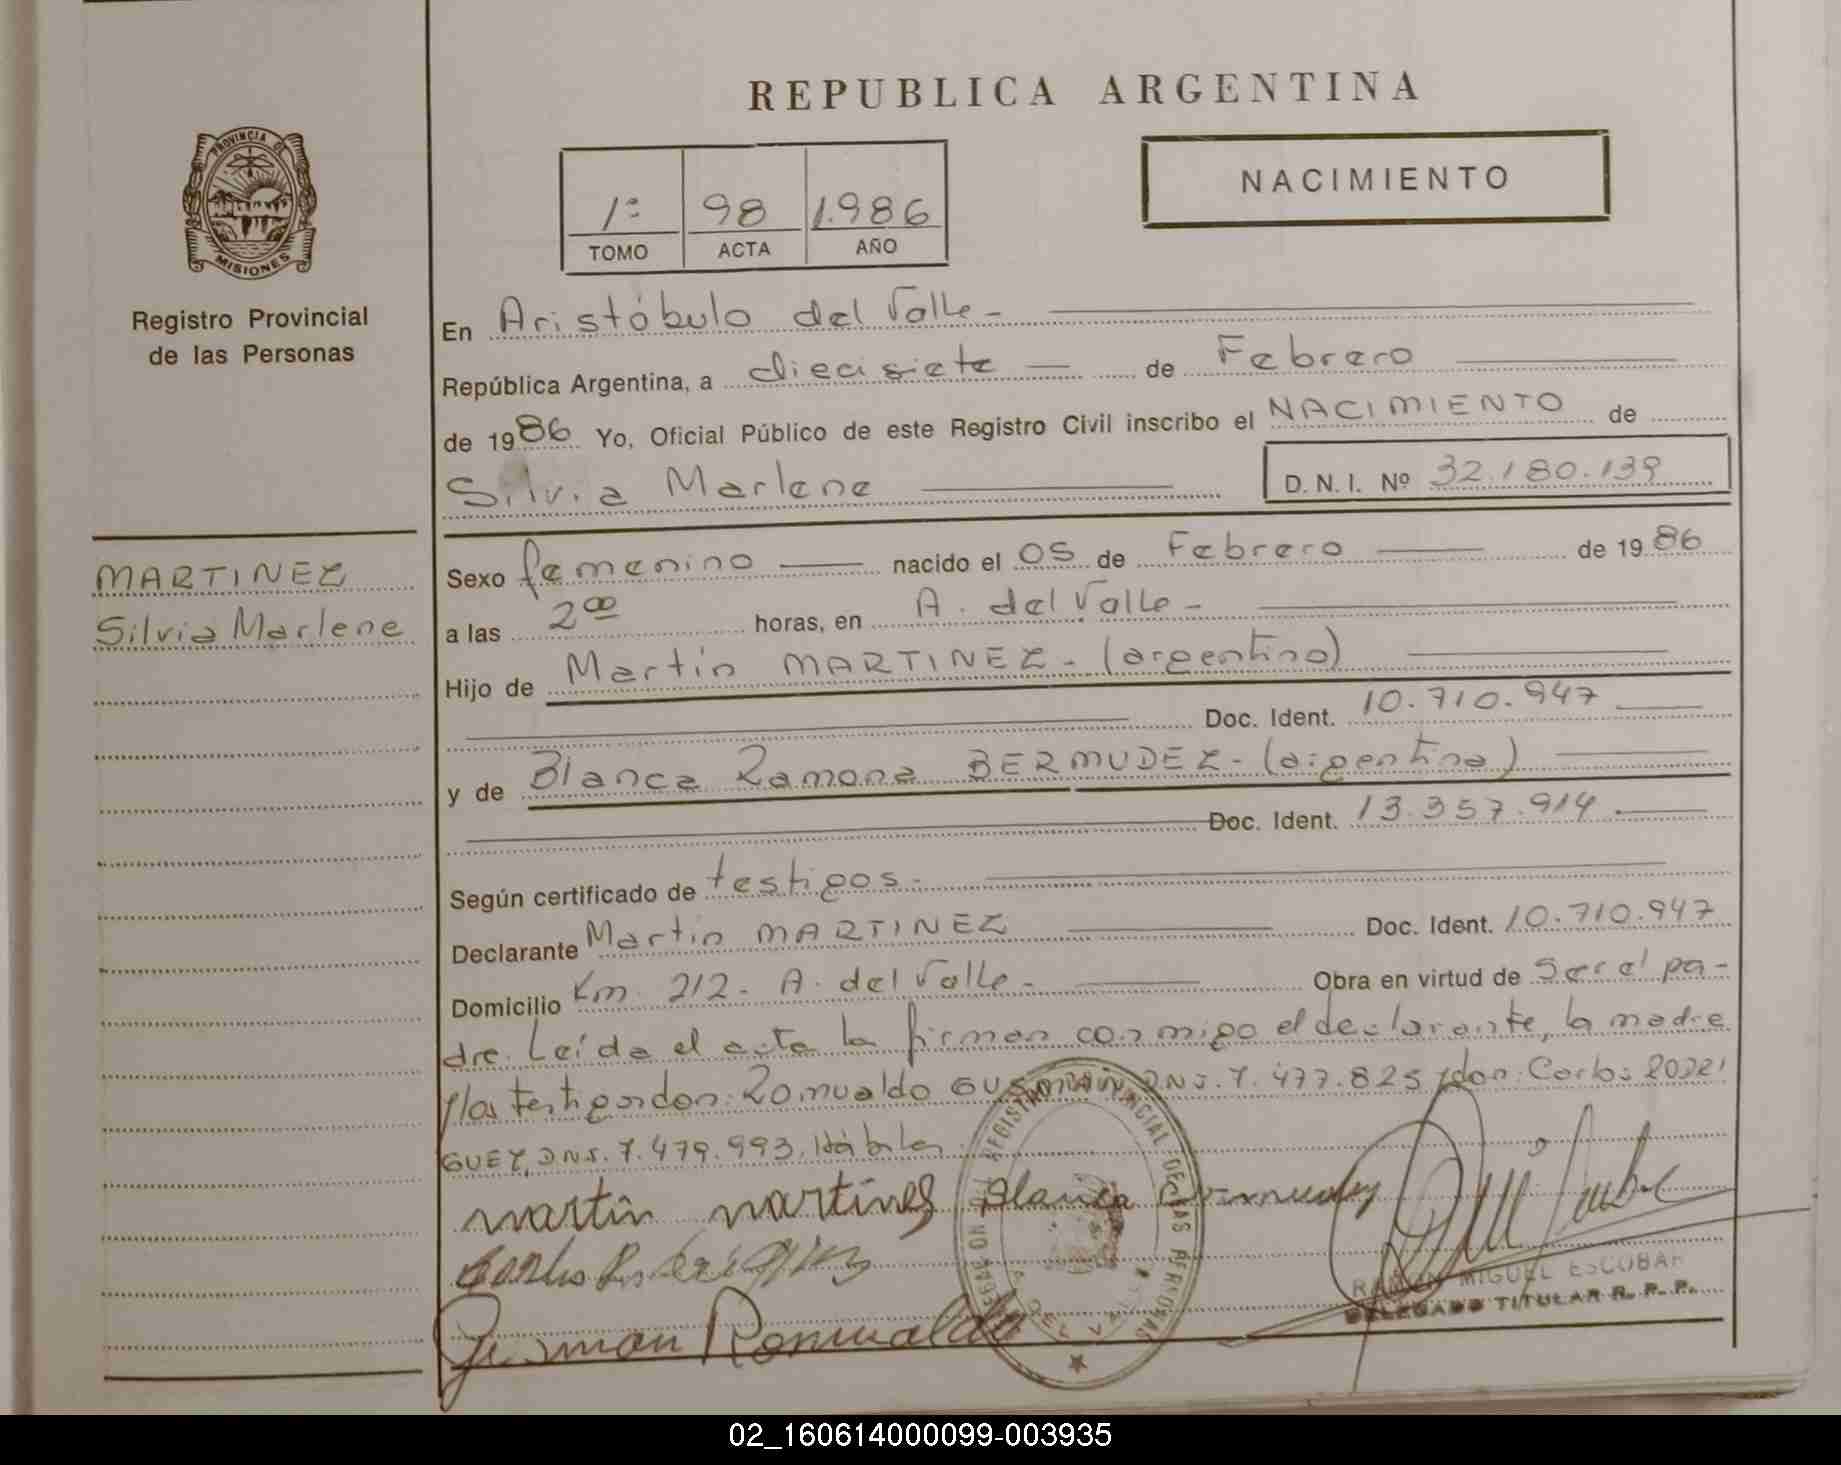 REPUBLICA ARGENTINA
PROVINCIA DE
MISIONES
Registro Provincial
de las Personas
1º 98 1.986
TOMO ACTA AÑO
NACIMIENTO
En Aristóbulo del Valle-
República Argentina, a diecisiete de Febrero
de 1986 Yo, Oficial Público de este Registro Civil inscribo el NACIMIENTO de
Silvia Marlene D.N.I. Nº 32.180.139
MARTINEZ
Silvia Marlene
Sexo femenino nacido el 05 de Febrero de 1986
a las 2 00 horas, en A. del Valle-
Hijo de Martín MARTINEZ- (argentino)
Doc. Ident. 10.710.947
y de Blanca Ramona BERMUDEZ- (argentina)
Doc. Ident. 13.357.914
Según certificado de testigos.
Declarante Martín MARTINEZ Doc. Ident. 10.710.947
Domicilio Km. 212- A. del Valle- Obra en virtud de ser el pa-
dre. Leída el acta la firman conmigo el declarante, la madre
y los testigos don: Romualdo GUSMAN DNI. 7.477.825 y don: Carlos RODRI
GUEZ, DNI. 7.479.993, Hábiles
martín martines Blanca Bermudez
Carlos
Gusman Romualdo
REGISTRO PROVINCIAL DE LAS PERSONAS
RAMON MIGUEL ESCOBAR
DELEGADO TITULAR R. P. P.
02_160614000099-003935